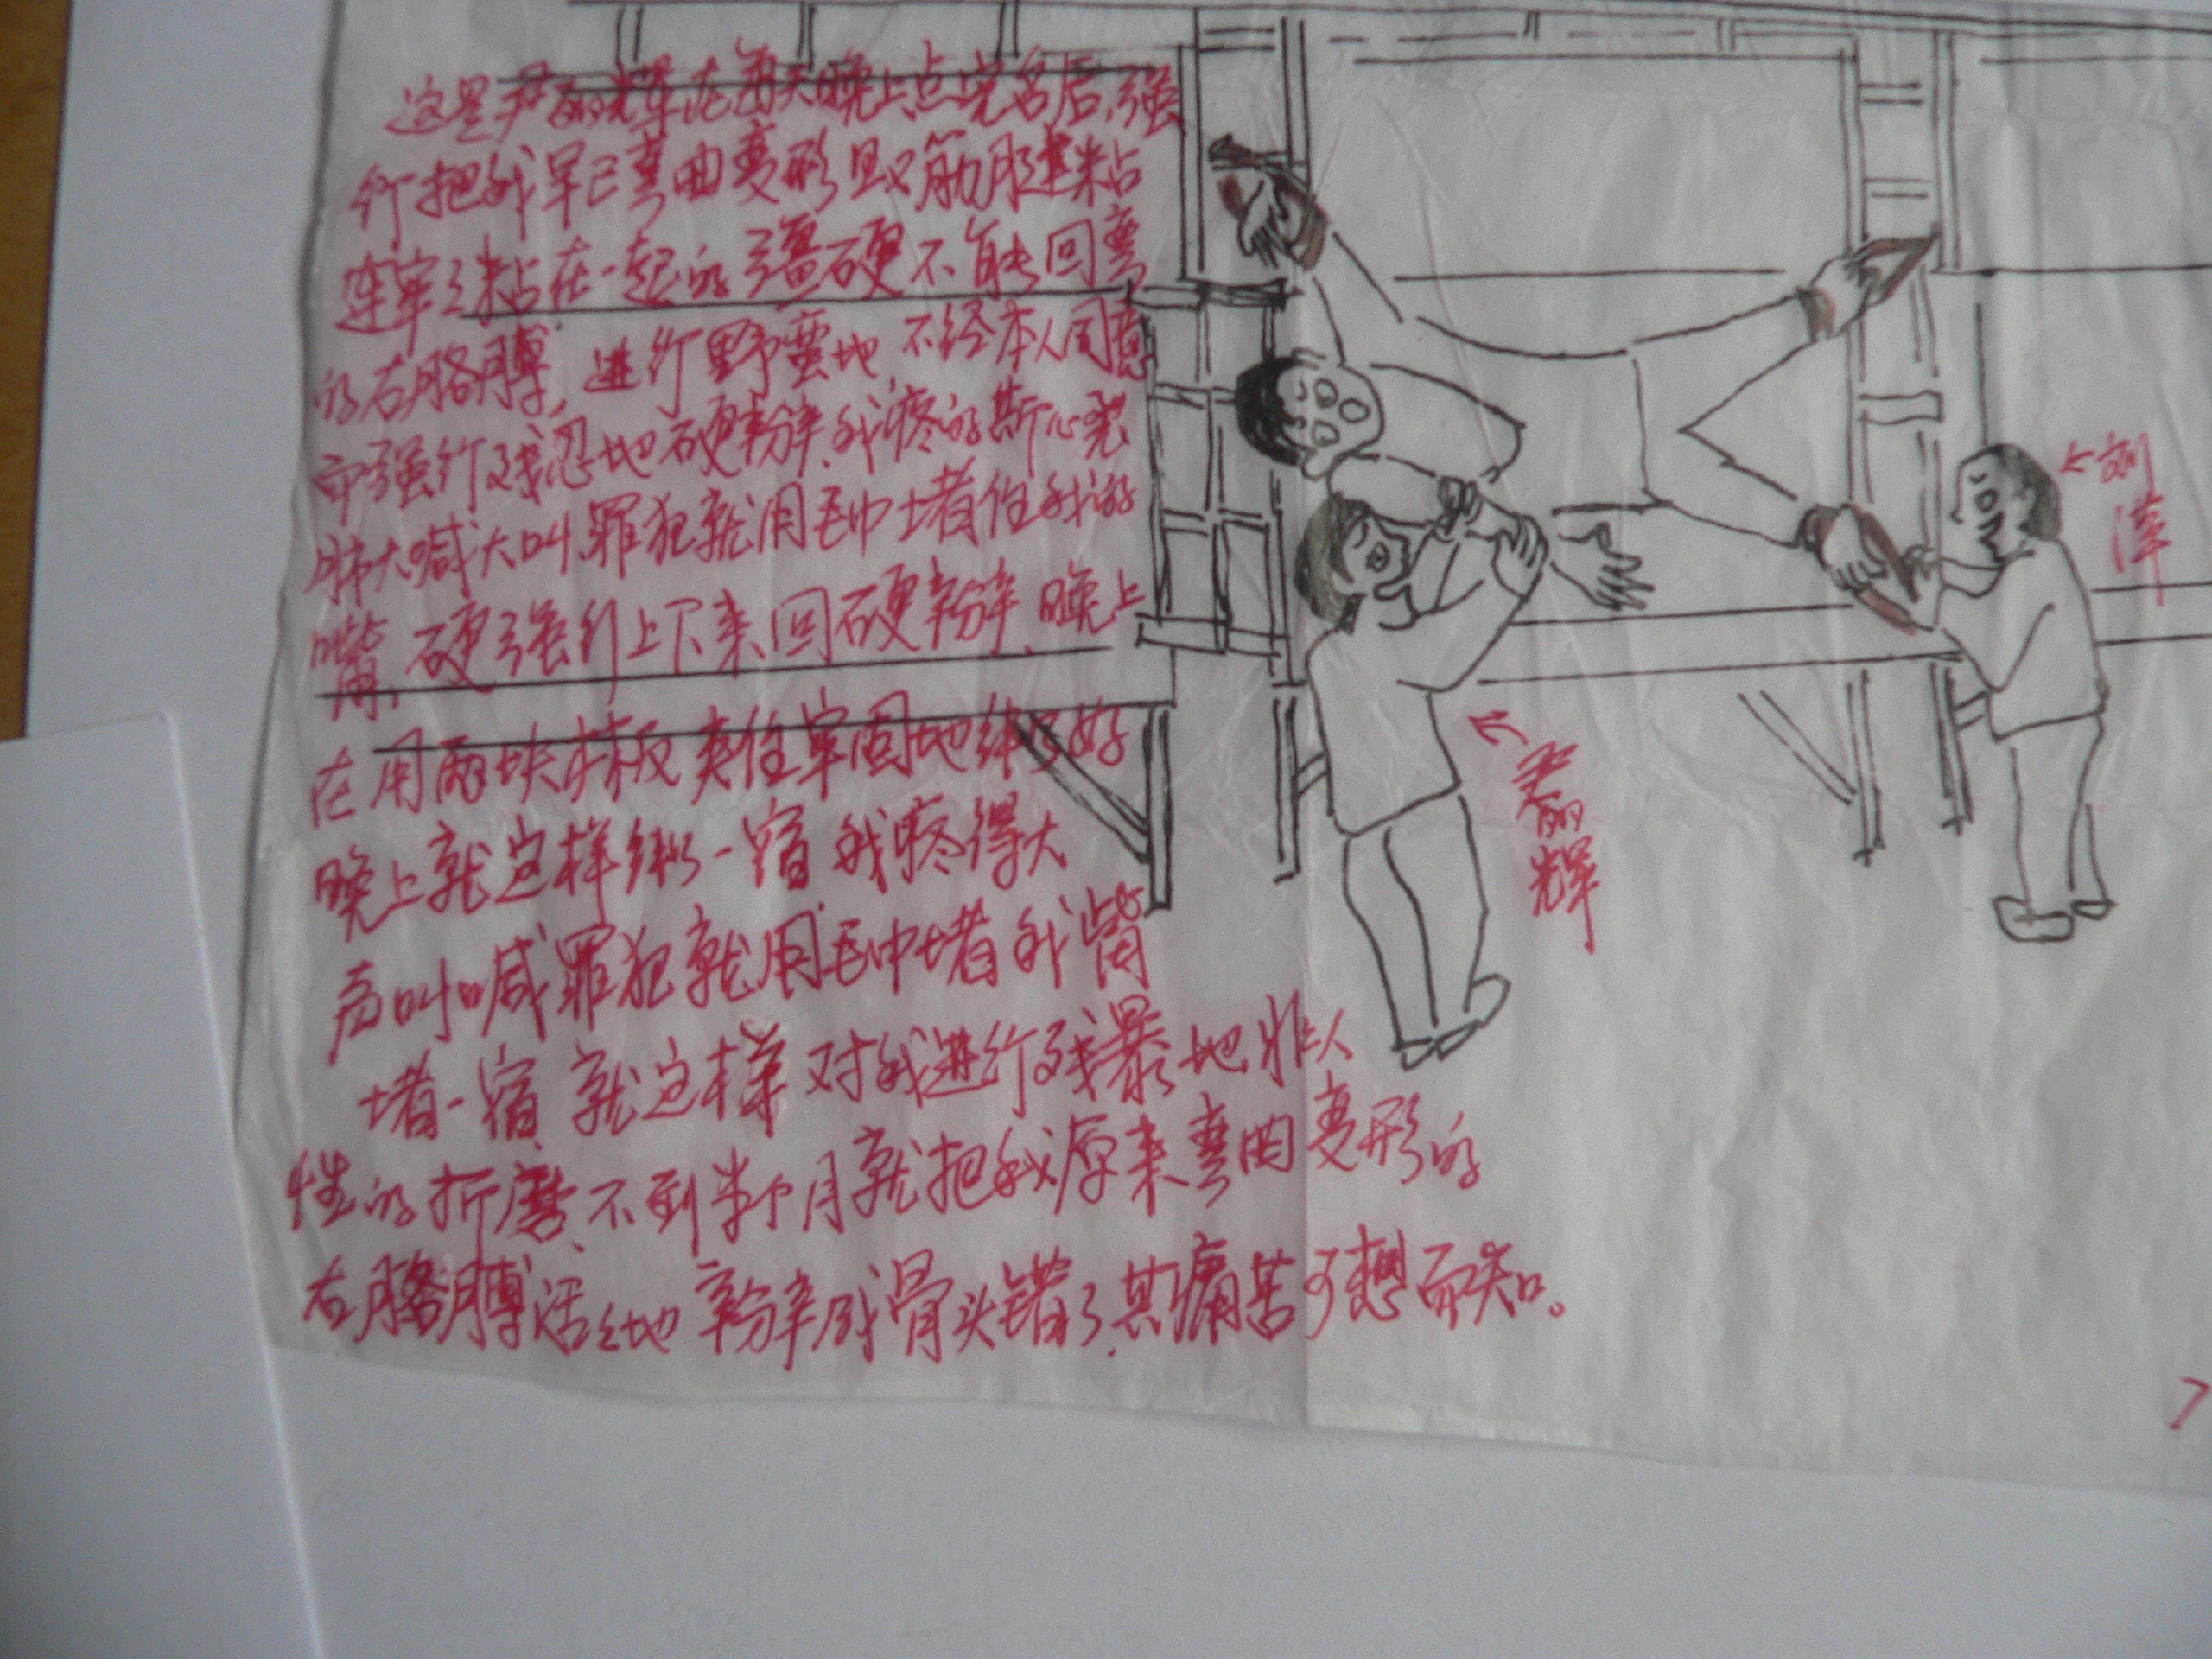 这是尹丽辉在每天晚上点完名后，强
行把我早已弯曲变形且筋腱粘
连牢々粘在一起的彊硬不能回弯
的右胳膊，进行野蛮地不经本人同意
而强行残忍地硬掰、我疼的斯心裂
肺大喊大叫，罪犯就用毛巾堵住我的
嘴，硬强行上下来回硬掰、晚上
在用两块木板夹住牢固地绑了好
晚上就这样绑一宿我疼得大
声叫喊罪犯就用毛巾堵我嘴
堵一宿、就这样对我进行残暴地非人
性的折磨、不到半个月就把我原来弯曲变形的
右胳膊活々地掰成骨头错了，其痛苦可想而知。
丽辉
7